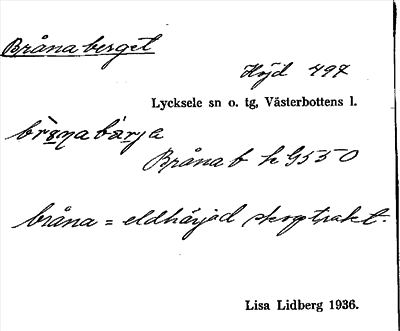 Brånaberget
Höjd 497
Lycksele sn o. tg, Västerbottens l.
Bråna b h G550
bråna = eldhärjad skogtrakt.
Lisa Lidberg 1936.